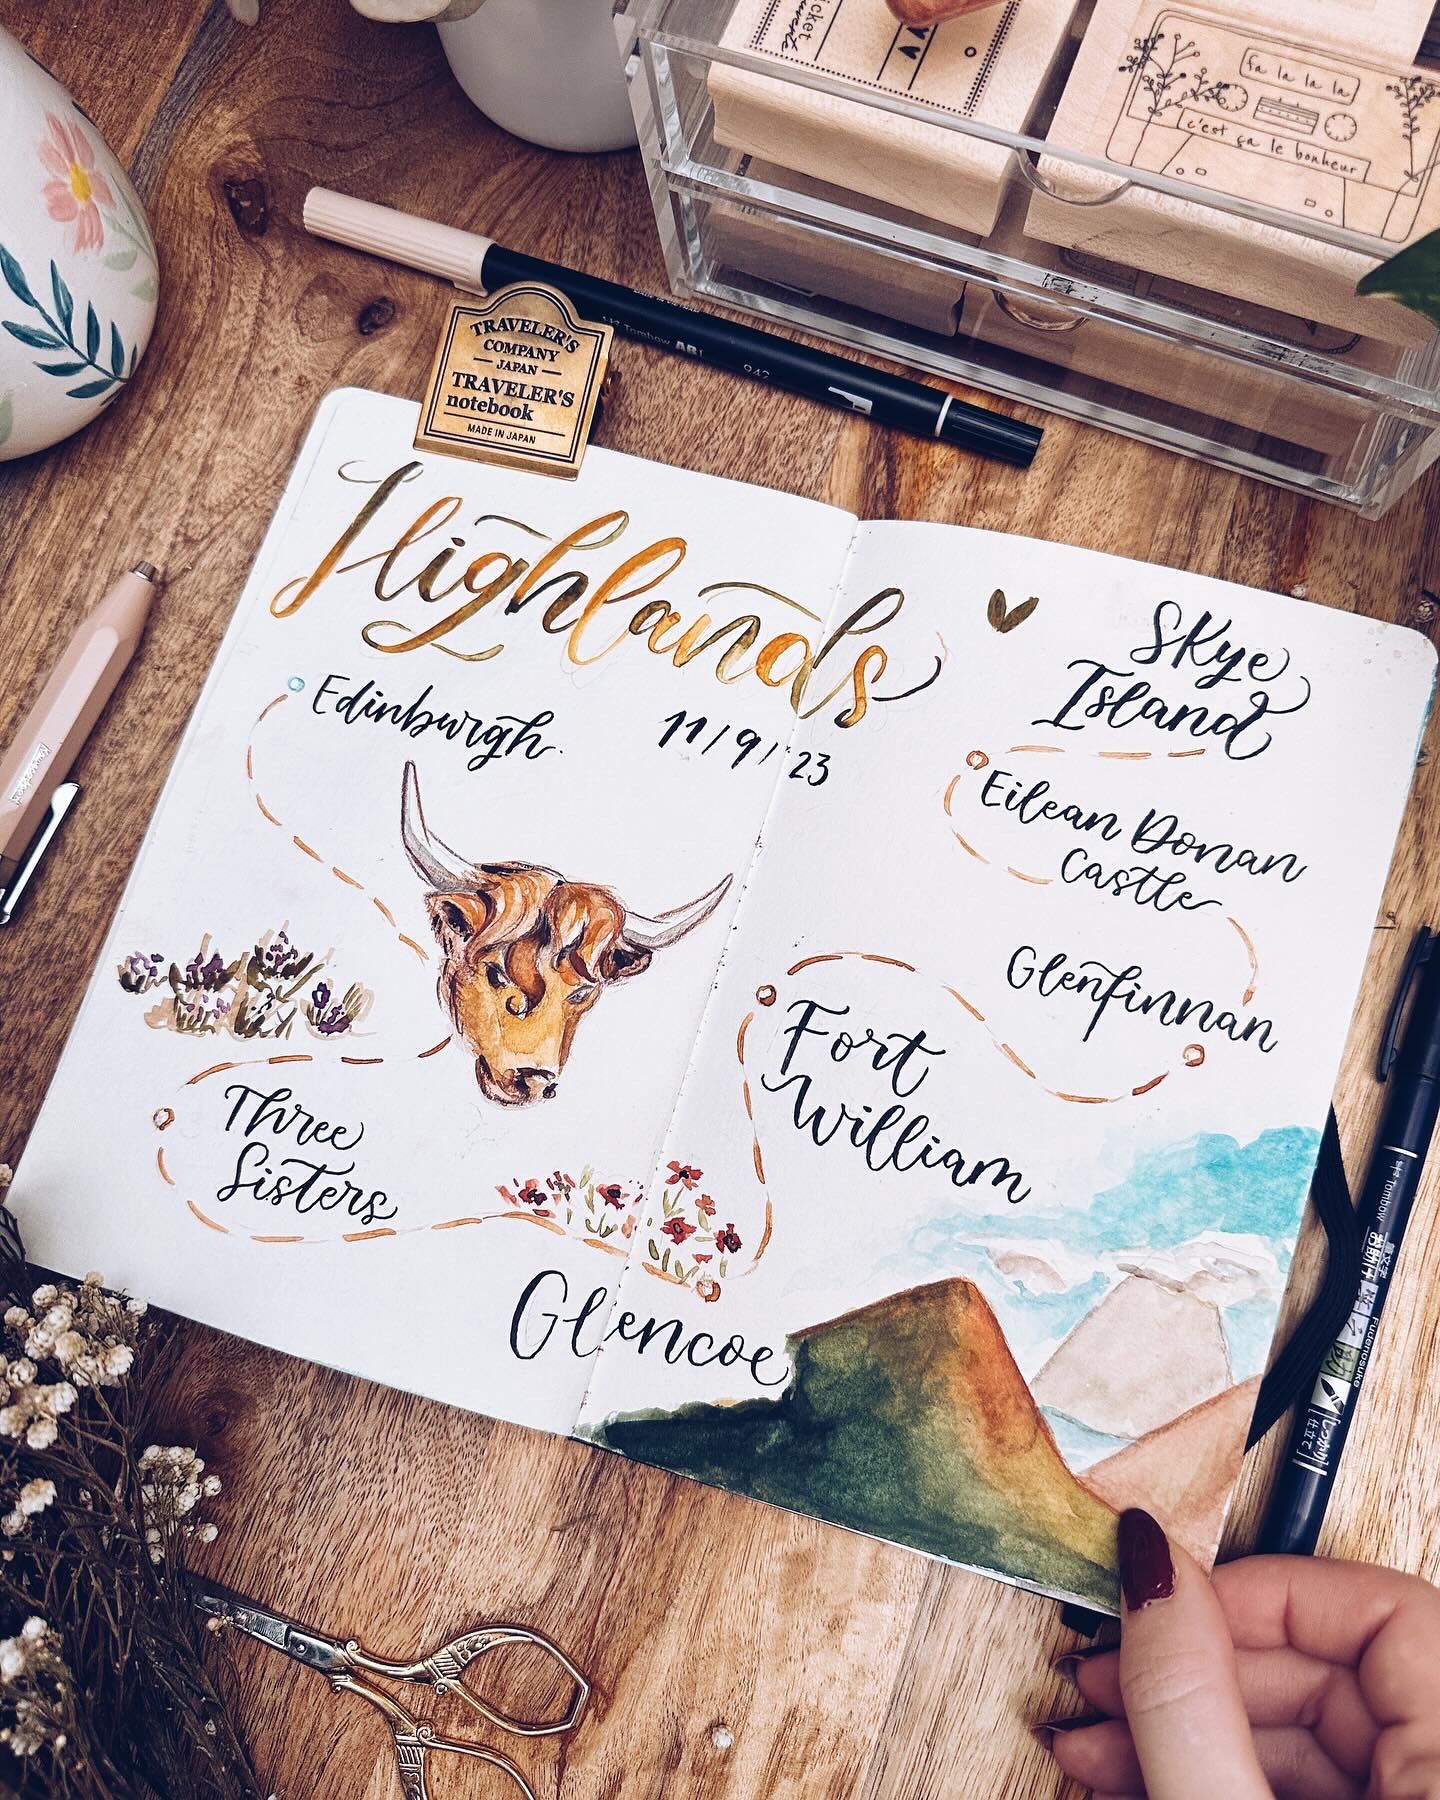 icket
fa la la la
c'est ça le bonheur
TRAVELER'S
COMPANY
JAPAN
TRAVELER'S
notebook
MADE IN JAPAN
Tombow ABT
942
Highlands
Edinburgh.
11/9/23
Skye
Island
Eilean Donan
Castle
Glenfinnan
Fort
William
Three
Sisters
Glencoe
Tombow
Fudenosuke
[しっかり
仕立て]